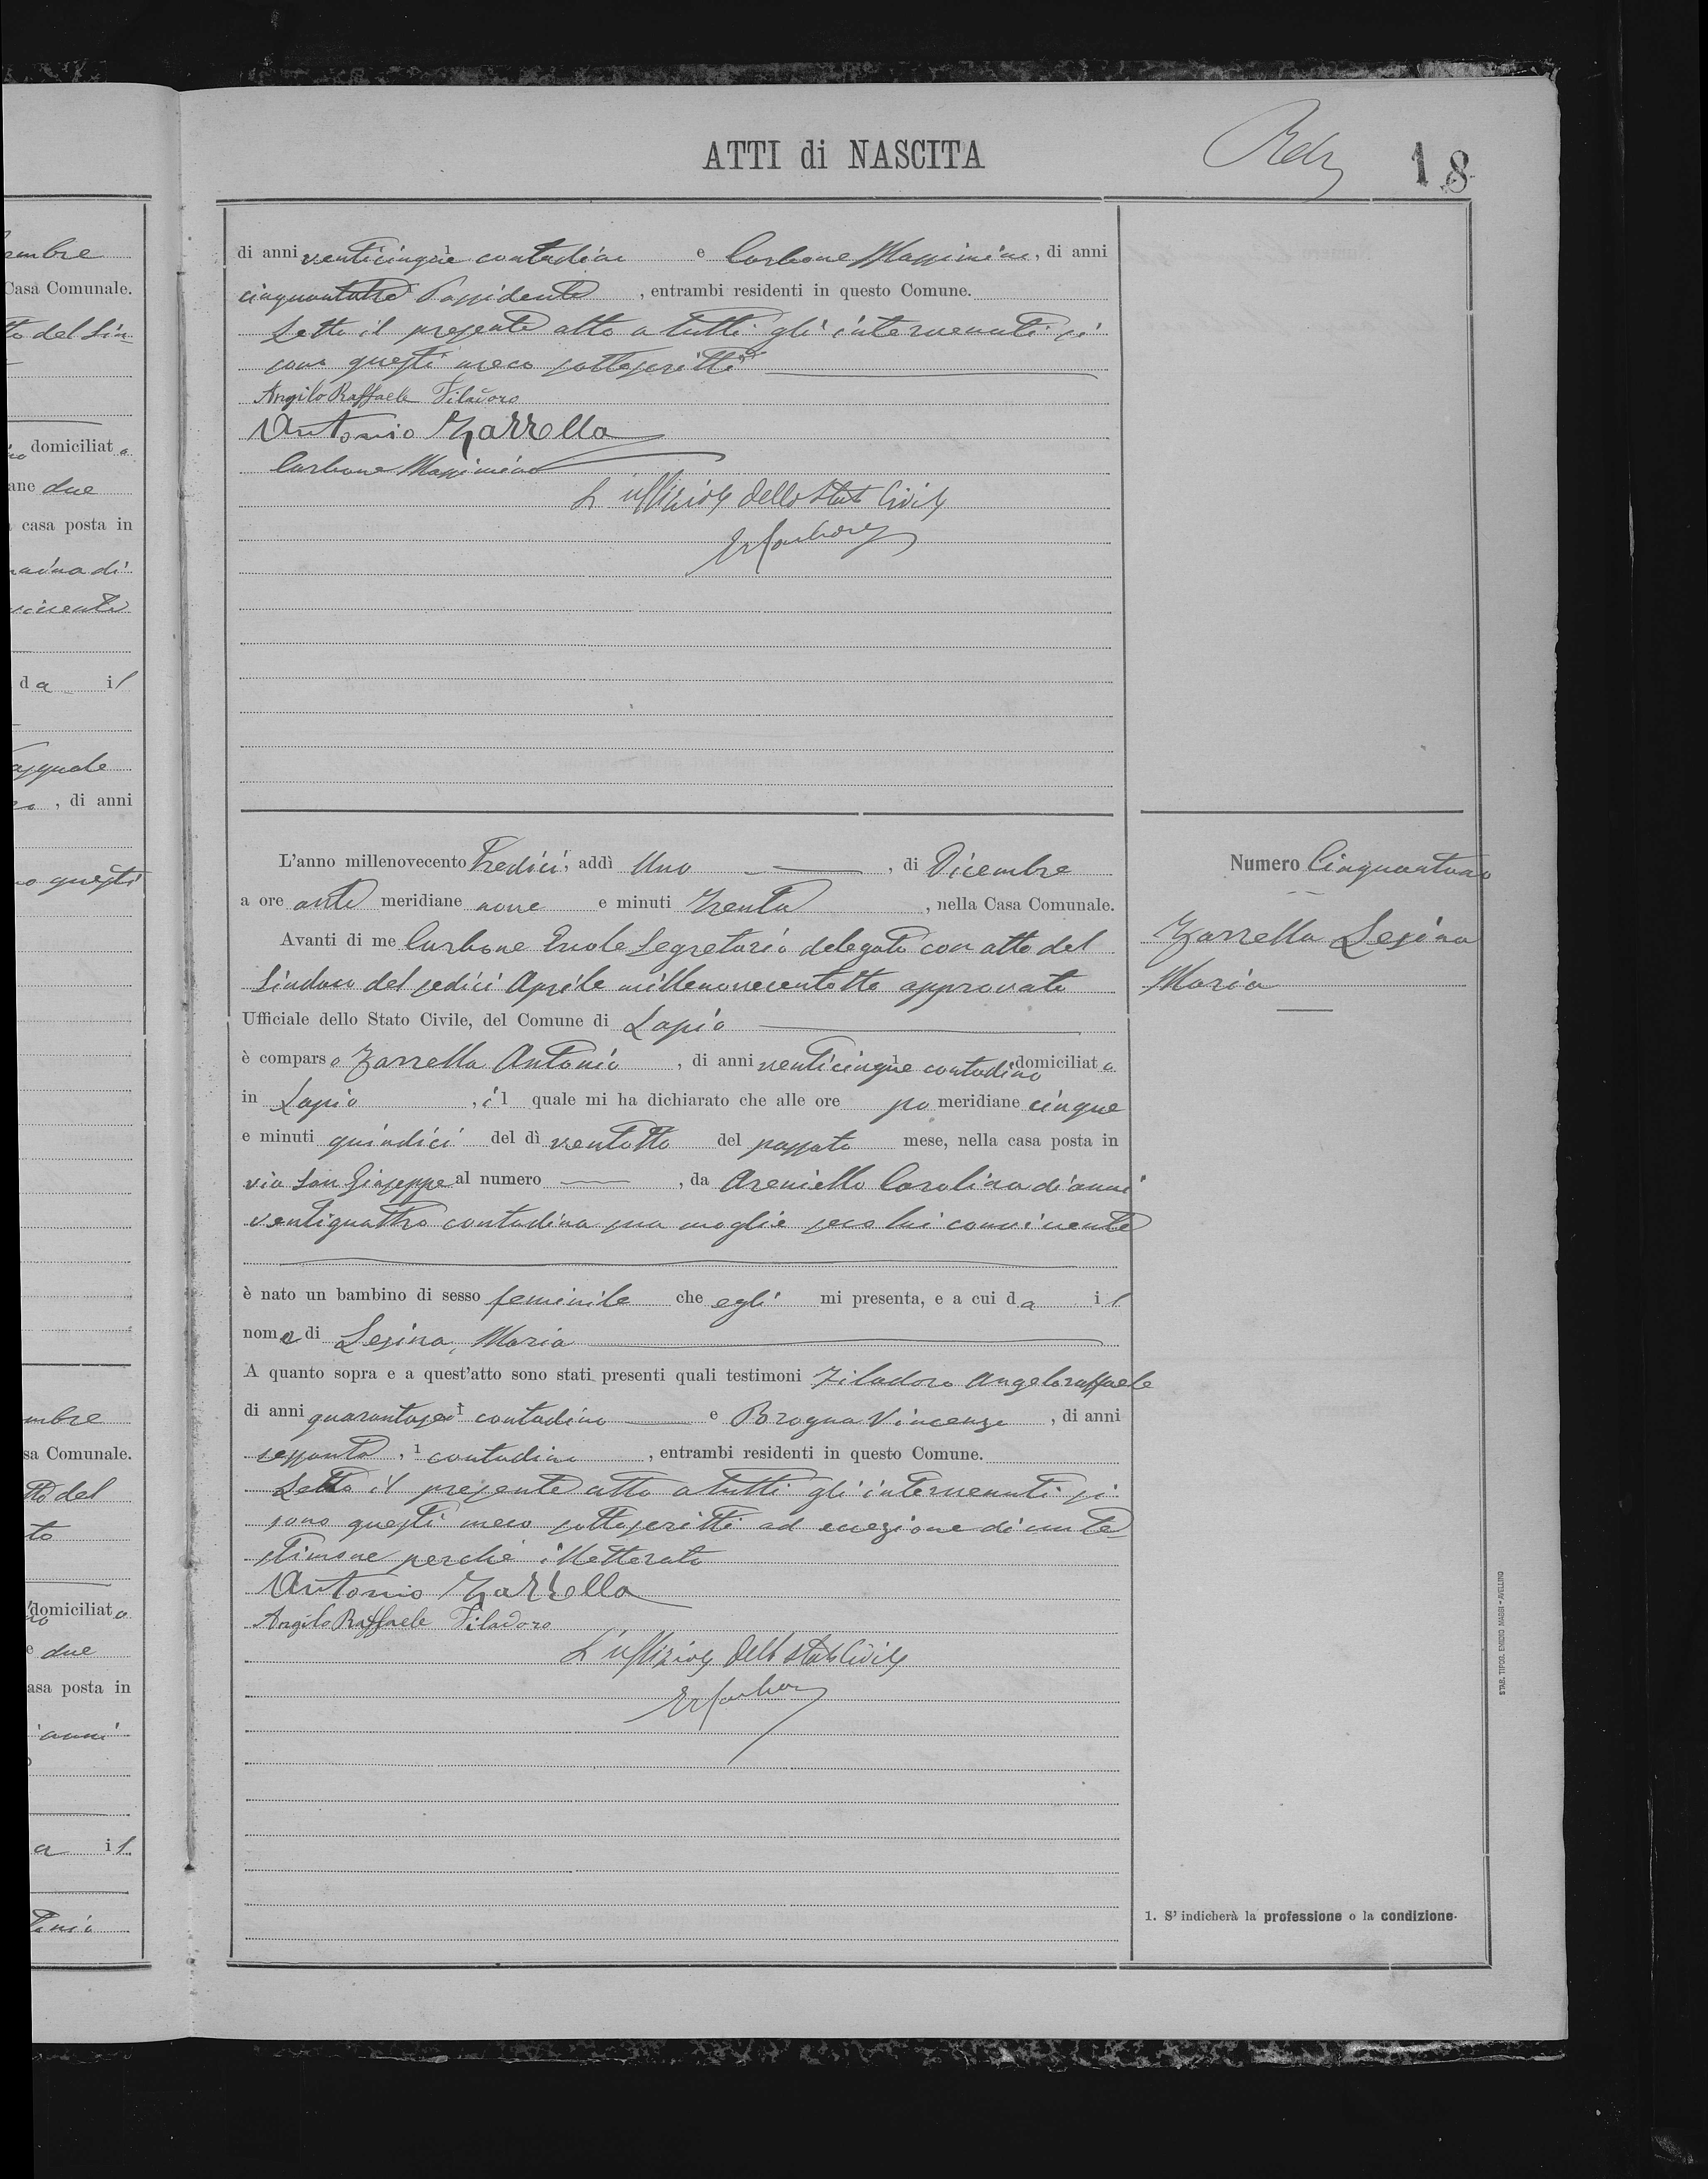 ATTI di NASCITA
18
di anni venticinque 1 contadino e Carbone Massimino, di anni
cinquantatre 1 Possidente, entrambi residenti in questo Comune.
Letto il presente atto a tutti gli intervenuti si
sono questi meco sottoscritti
Angilo Raffaele Filadoro
Antonio Zarrella
Carbone Massimino
L'uffiziale dello Stato Civile
L'anno millenovecento Tredici, addì Uno, di Dicembre
a ore ante meridiane nove e minuti Trenta, nella Casa Comunale.
Avanti di me Carbone Ercole Segretario delegato con atto del
Sindaco del sedici Aprile millenovecentotto approvato
Ufficiale dello Stato Civile, del Comune di Lapio
è comparso Zarrella Antonio, di anni venticinque 1 contadino domiciliato
in Lapio, il quale mi ha dichiarato che alle ore po meridiane cinque
e minuti quindici del dì ventotto del passato mese, nella casa posta in
via San Giuseppe al numero, da Areniello Carolina di anni
ventiquattro contadina sua moglie seco lui convivente
è nato un bambino di sesso feminile che egli mi presenta, e a cui da il
nome di Lesina, Maria
A quanto sopra e a quest'atto sono stati presenti quali testimoni Filadoro Angeloraffaele
di anni quarantasei 1 contadino e Brogna Vincenzo, di anni
sessanta, 1 contadino, entrambi residenti in questo Comune.
Letto il presente atto a tutti gli intervenuti si
sono questi meco sottoscritti ad eccezione di un te-
stimone perché illetterato
Antonio Zarrella
Angilo Raffaele Filadoro
L'uffiziale dello stato Civile
Numero Cinquantuno
Zarrella Lesina
Maria
1. S'indicherà la professione o la condizione.
STAB. TIPOG. EMIDIO MAGGI - AVELLINO